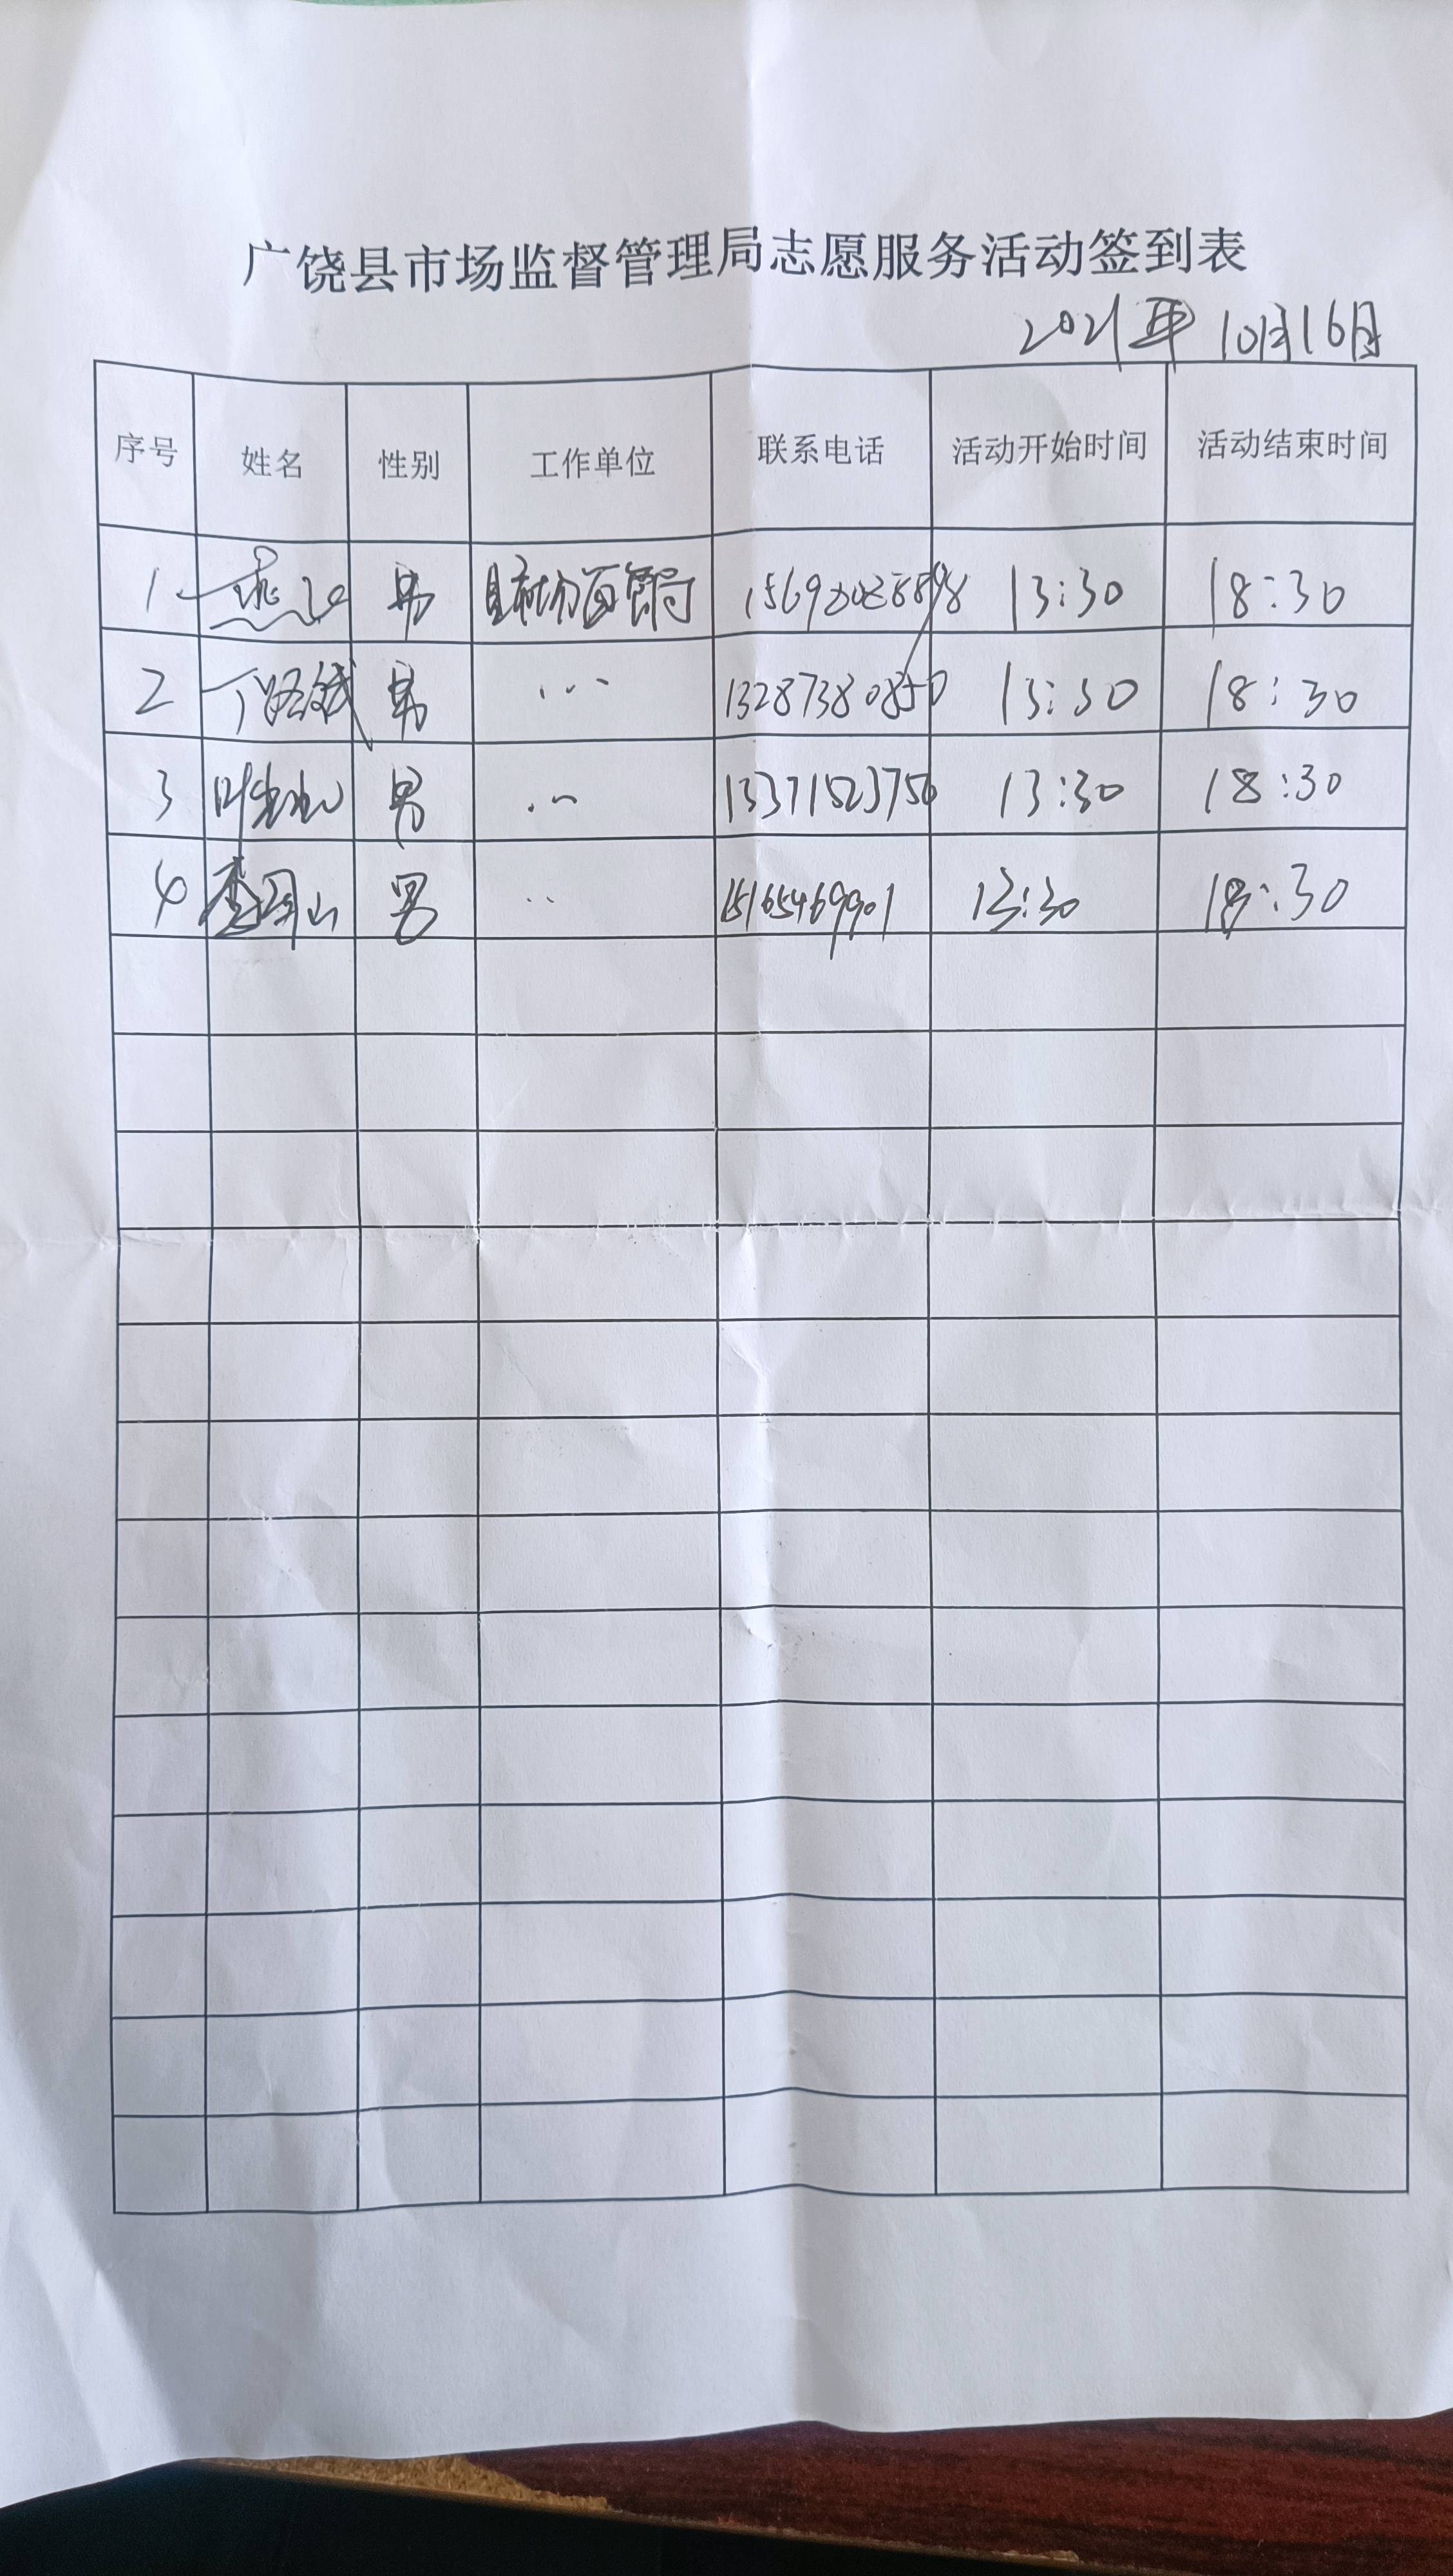 广饶县市场监督管理局志愿服务活动签到表
2021年10月16日
序号 姓名 性别 工作单位 联系电话 活动开始时间 活动结束时间
1 男 县市场监管局 13:30 18:30
2 男 13287380850 13:30 18:30
3 男 13371523756 13:30 18:30
4 李国山 男 15165469901 13:30 18:30